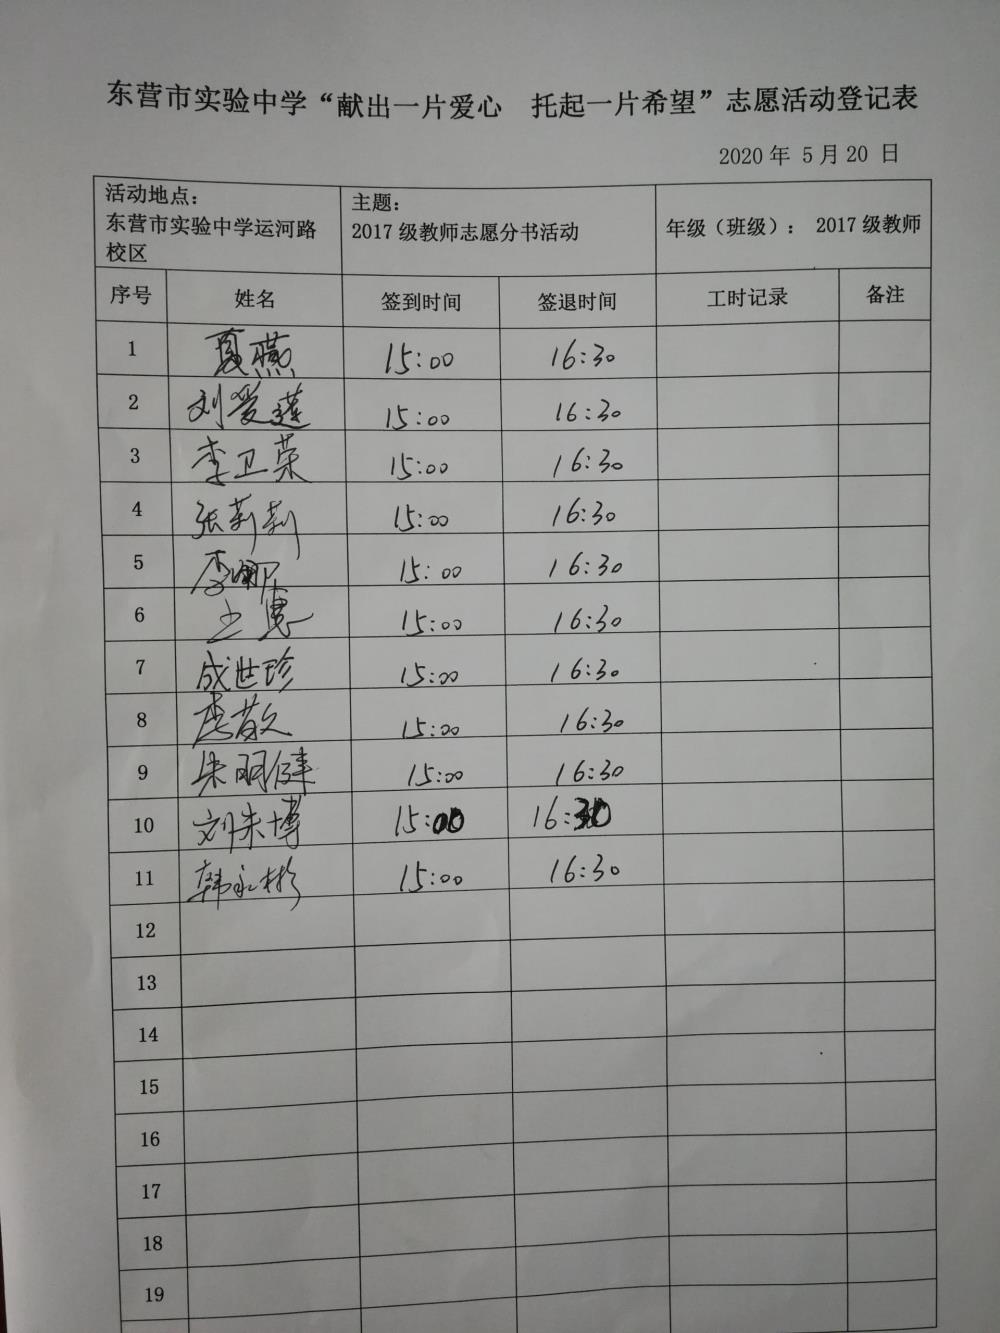 东营市实验中学“献出一片爱心 托起一片希望”志愿活动登记表
2020 年 5 月 20 日
活动地点：
东营市实验中学运河路
校区
主题：
2017 级教师志愿分书活动
年级（班级）： 2017 级教师
序号 姓名 签到时间 签退时间 工时记录 备注
1 夏燕 15:00 16:30
2 刘爱莲 15:00 16:30
3 李卫荣 15:00 16:30
4 张莉莉 15:00 16:30
5 李娜 15:00 16:30
6 王惠 15:00 16:30
7 成世珍 15:00 16:30
8 15:00 16:30
9 朱明健 15:00 16:30
10 刘朱博 15:00 16:30
11 韩永彬 15:00 16:30
12
13
14
15
16
17
18
19